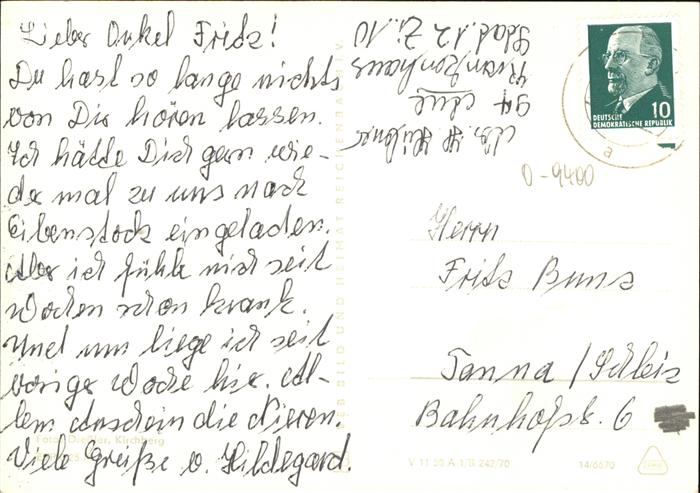 Lieber Onkel Fritz!
Du hast so lange nichts
von Dir hören lassen.
Ich hätte Dich gern wie-
der mal zu uns nach
Eibenstock eingeladen.
Aber ich fühle mich seit
Wochen schon krank.
Und nun liege ich seit
vorige Woche hier. Al-
lem Anschein die Nieren.
Viele Grüße v. Hildegard.
94 Aue
Krankenhaus
Stat. 12 Zi. 10
DEUTSCHE
DEMOKRATISCHE REPUBLIK
10
a
D-9400
Herrn
Fritz Buns
Tanna / Schleiz
Bahnhofstr. 6
BILD UND HEIMAT REICHENBACH I. V.
Foto: Dreßler, Kirchberg
V 11 50 A 1/B 242/70
14/6670